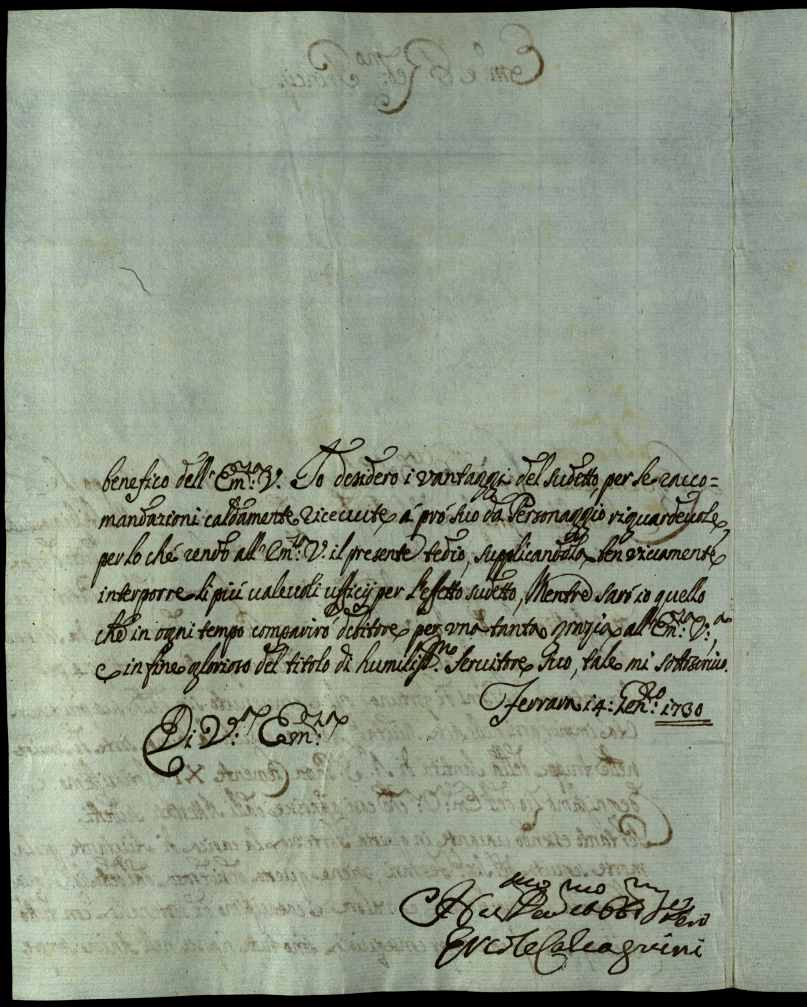 benefico dell'Em:za V. Io desidero i vantaggi del sudetto, per le racco=
mandazioni caldamente riceuute à pró suo da Personaggio riguardeuole,
per lo ché rendo all'Em:za V. il presente tedio, supplicandola ben viuamente
interporre li piú ualeuoli ufficij per l'effetto sudetto, Mentre saró io quello
che in ogni tempo compariró debitore per una tanta grazia all'Em:za V:a
e in fine glorioso del titolo di humiliss.mo Seruitore suo, tale mi sottoscriuo.
Ferrara 14: Gen:o 1730
Di V:a Em:za
Ercole Calcagnini